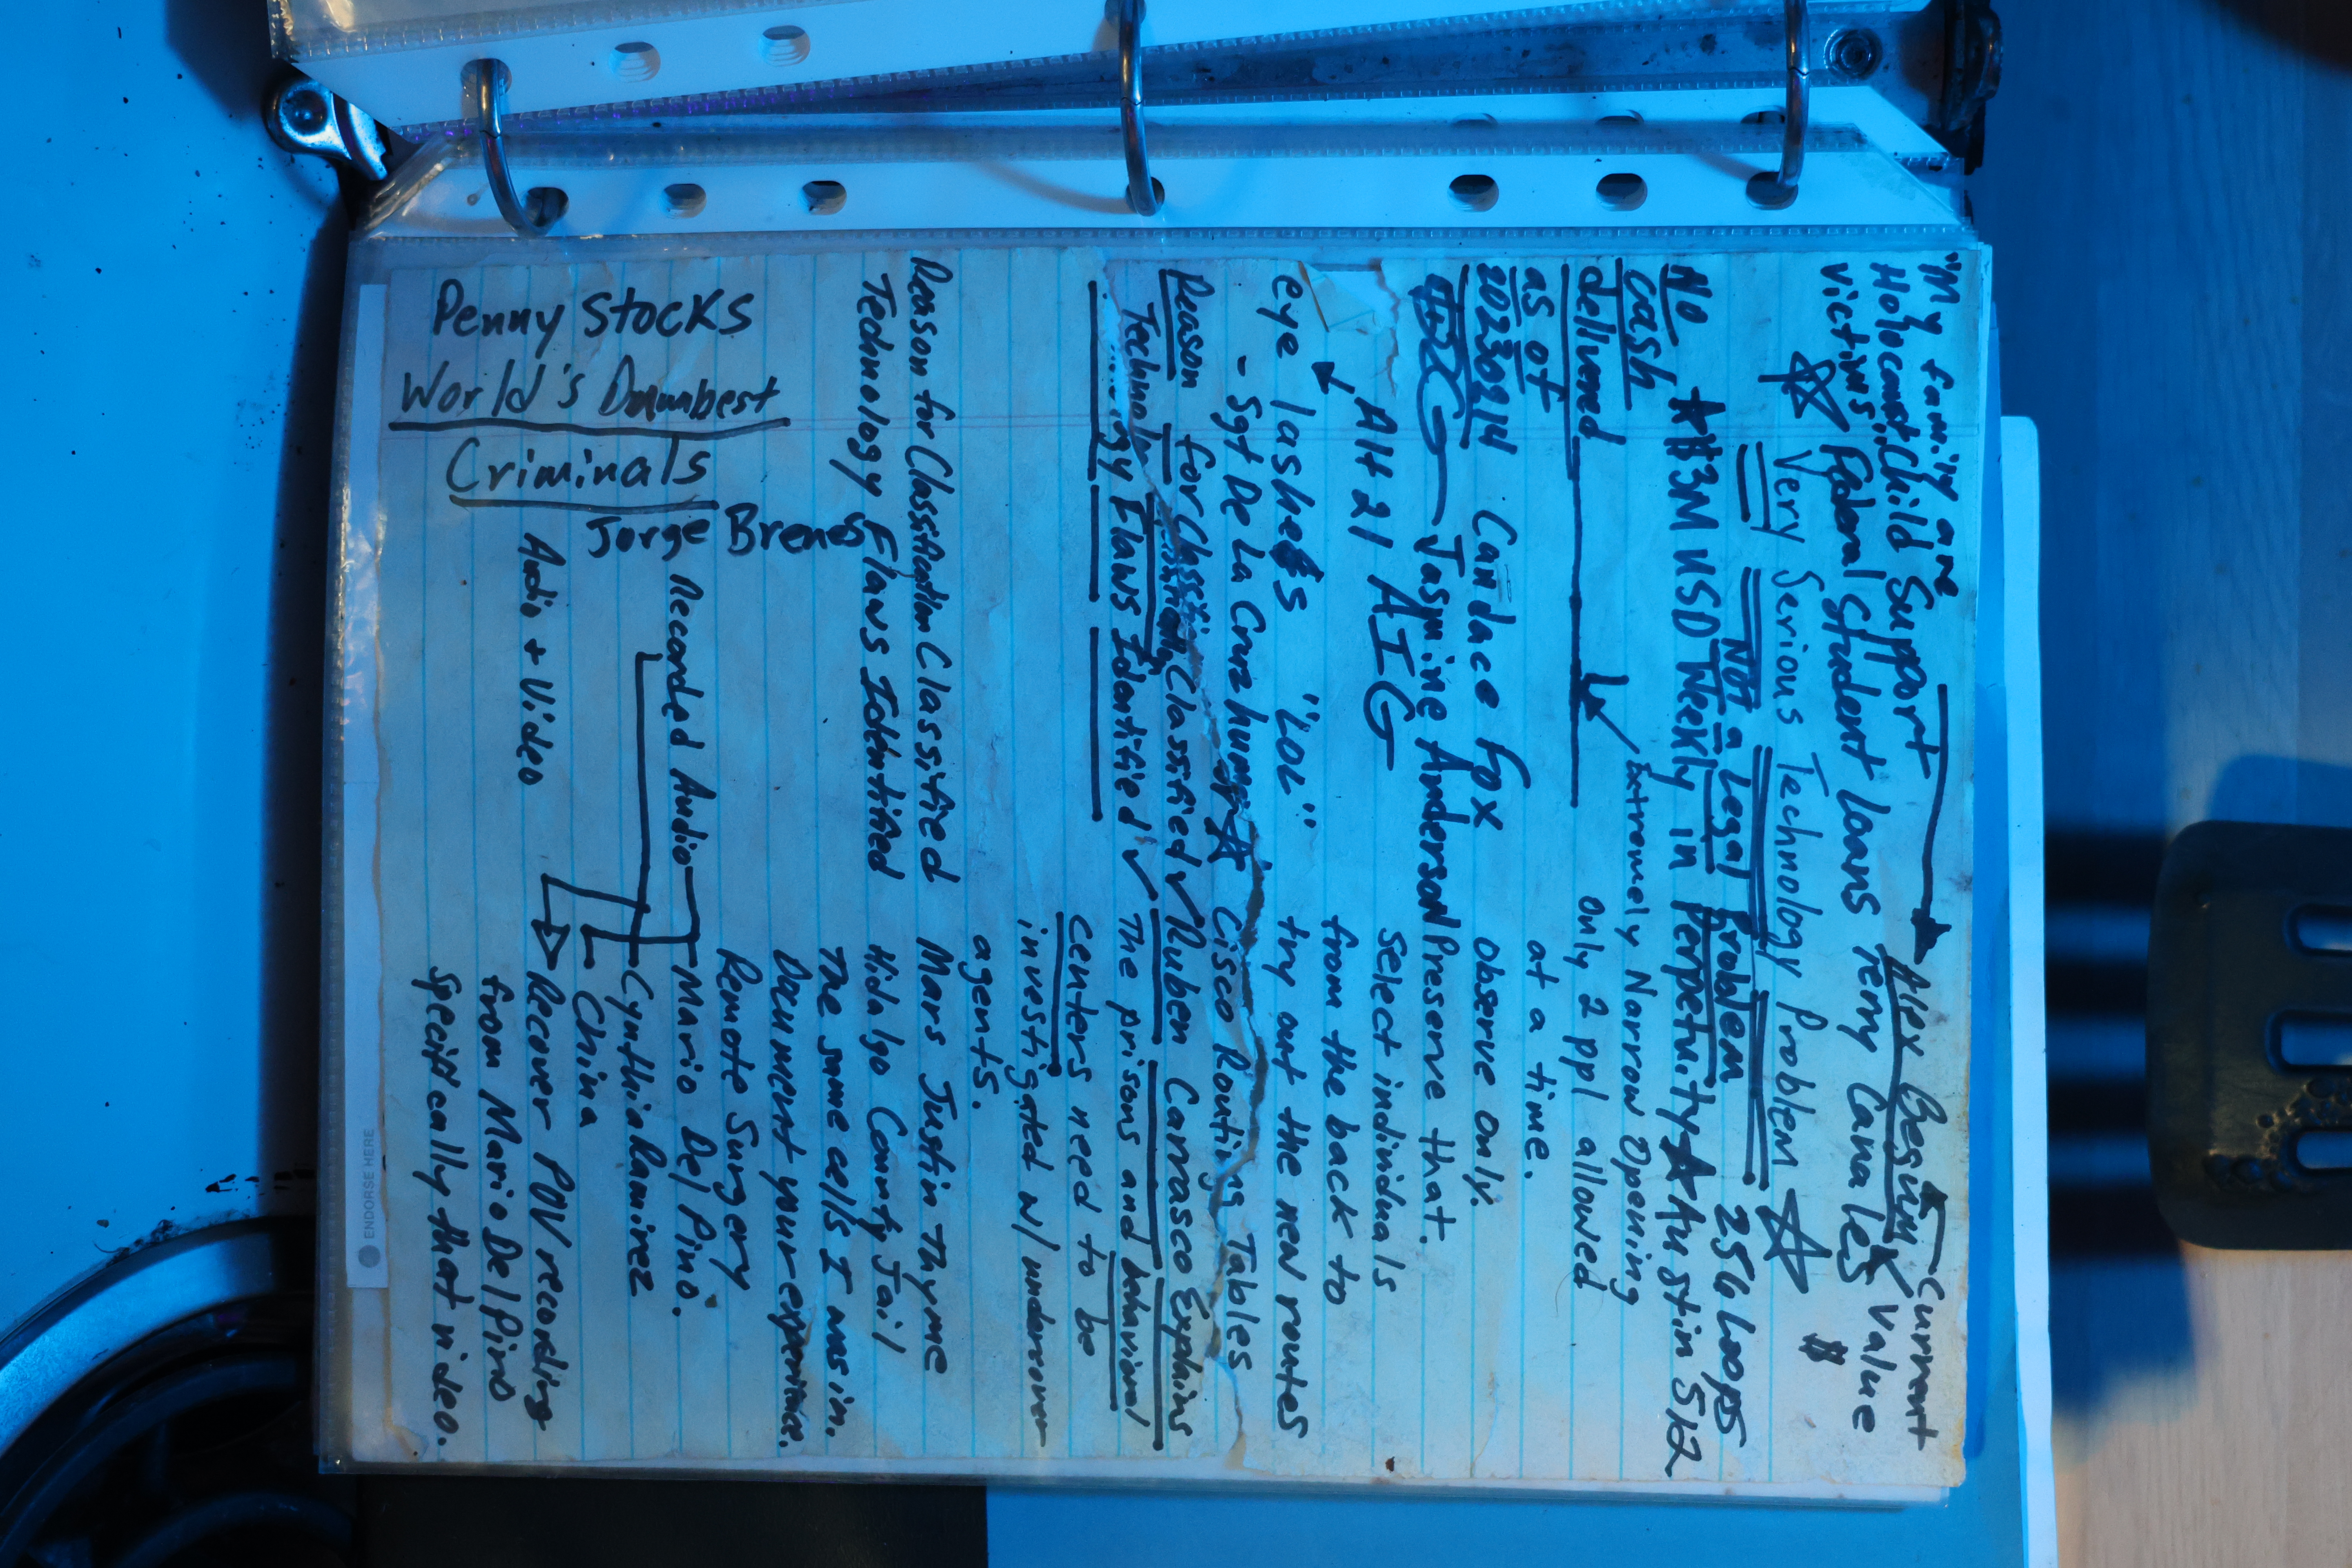 "My family are
Holocaust
victims."
Child Support
Alex Besinu
Current
Value
$
☆ Federal Student Loans Terry Canales
Very Serious Technology Problem ☆
NOT a Legal Problem 256 Loops
No
cash
delivered
as of
20230914
☆#3M USD Weekly in Perpetuity☆Austin 512
Extremely Narrow Opening
only 2 ppl allowed
at a time.
Candace Fox
observe only.
Jasmine Anderson
Preserve that.
Alt 21 AIG
Select individuals
from the back to
eye lashes "LOL"
try out the new routes
- Sgt De La Cruz
☆ Cisco Routing Tables
Reason for Classified ✓ Ruben Carrasco Explains
Technology Flaws Identified ✓ The prisons and behavioral
centers need to be
investigated w/ undercover
agents.
Reason for Classification Classified Mars Justin Thyme
Technology Flaws Identified Hidalgo County Jail
The same cells I was in.
Document your experience.
Remote Surgery
Recorded Audio
Mario Del Pino.
Cynthia Ramirez
China
Audio + Video
Recover POV recording
from Mario Del Pino
specifically that video.
Penny Stocks
World's Dumbest
Criminals
Jorge Brenes
ENDORSE HERE